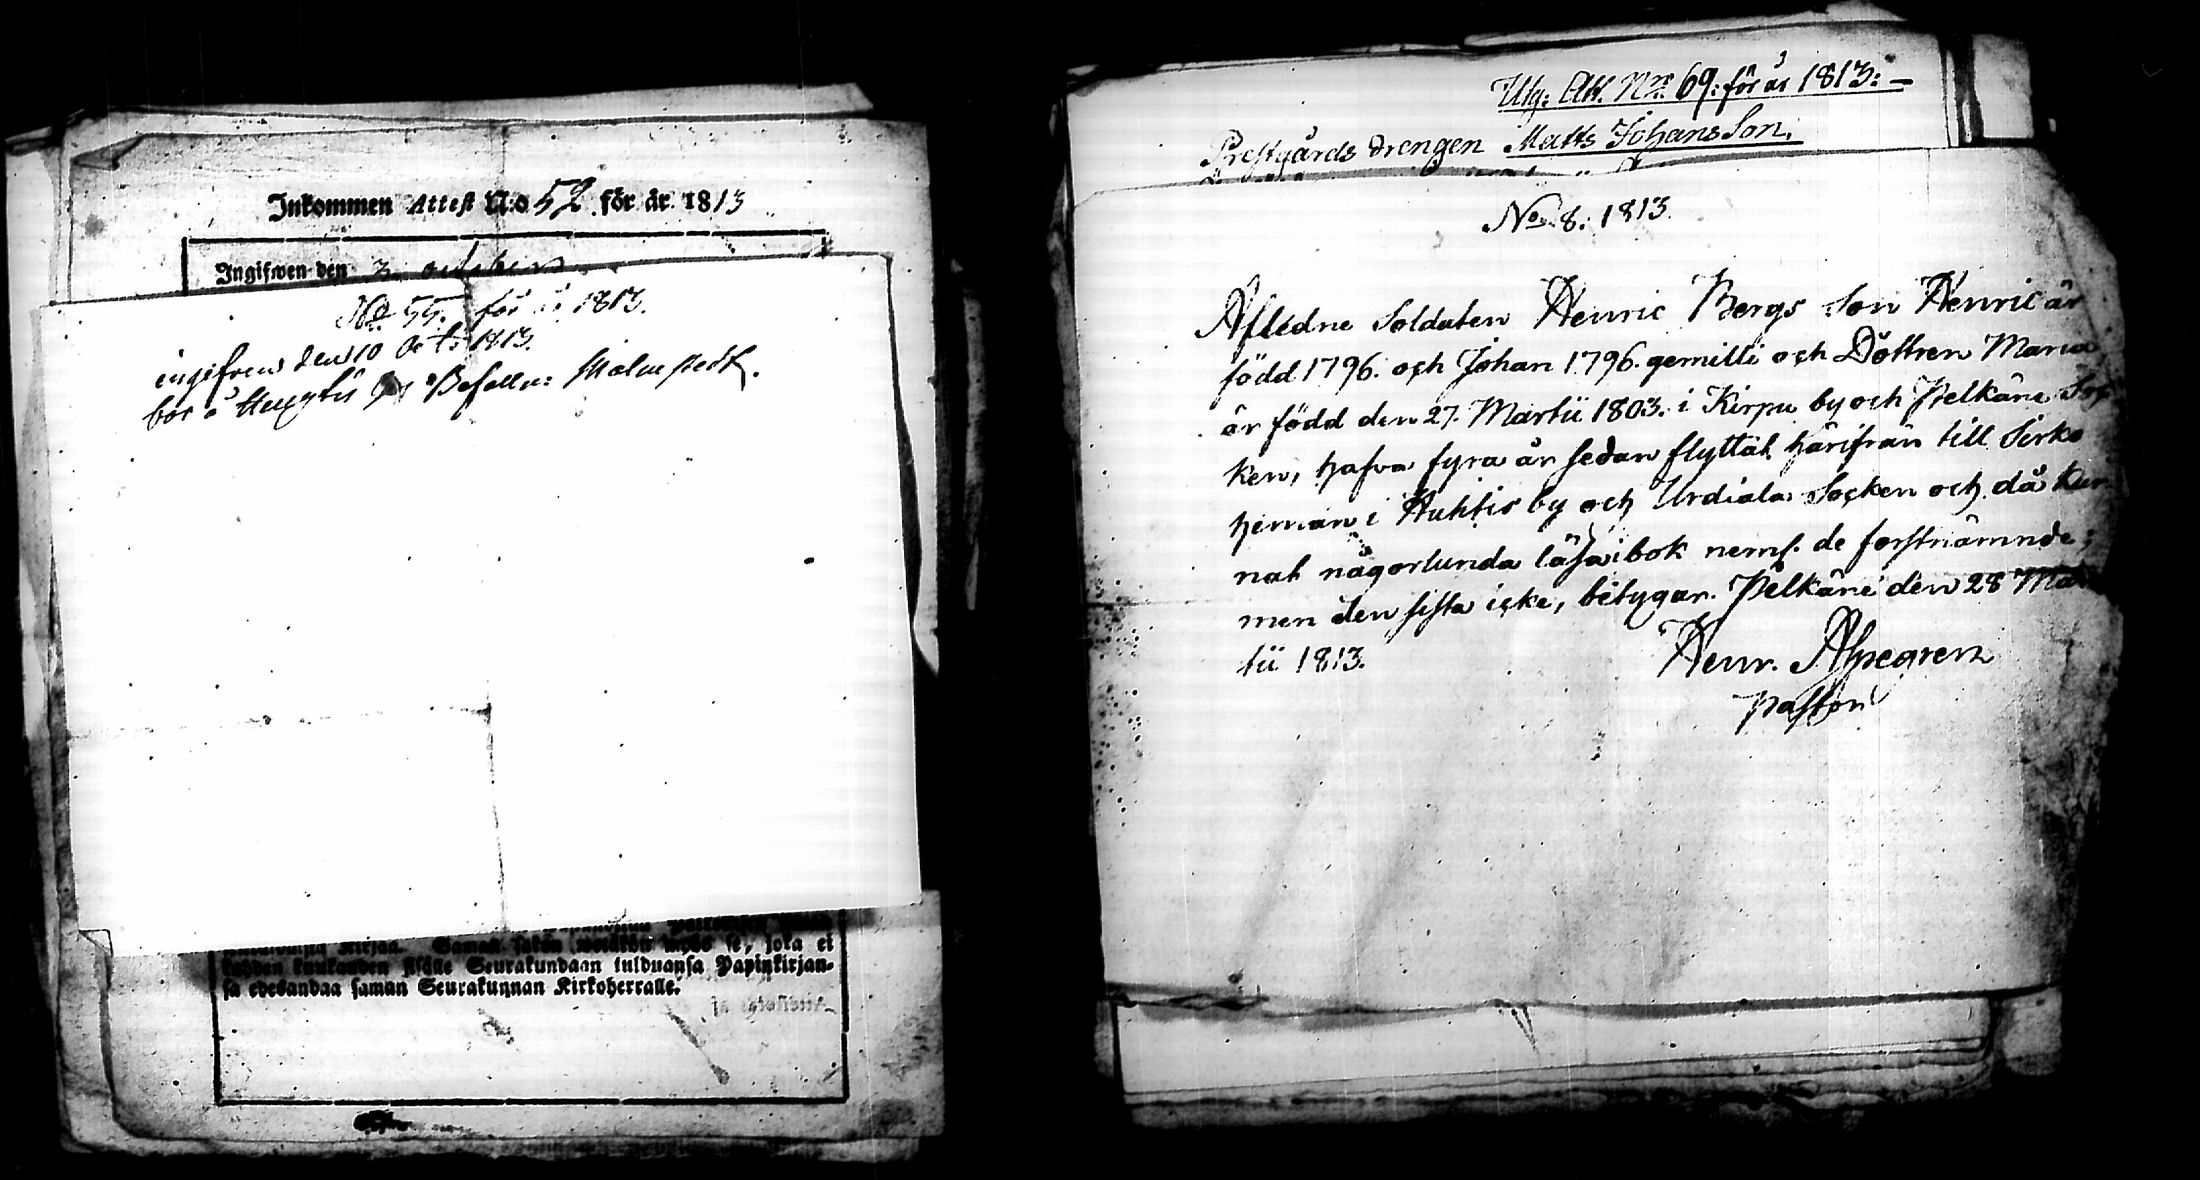 Inkommen Attest N:o 52 för år 1813
Ingifwen den 3 october
No 55. för år 1813.
ingifven den 10 Oct: 1813.
bor å Befalln: Malmstedt.
Kirjaa. Saman se, joka ei
kahden kuukauden sisälle Seurakundaan tulduansa Papinkirjan-
sa edesandaa saman Seurakunnan Kirkoherralle.
Utg: Att. Nro 69: för år 1813: —
Prestgårds drengen Matts Johans Son.
No 8: 1813.
Afledne Soldaten Henric Bergs Son Henric är
född 1796. och Johan 1796. gemilli och Dottren Maria
är född den 27. Martii 1803. i Kirpu by och Pelkäne Soc
ken, hafva fyra år sedan flyttat härifrån till Sirko
heman i Huhtis by och Urdiala Socken och då kun
nat någorlunda läsa i bok neml. de förstnämnde;
men den sista icke, betygar. Pelkäne den 28 Mar
tii 1813.
Henr. Ahlegren
Pastor